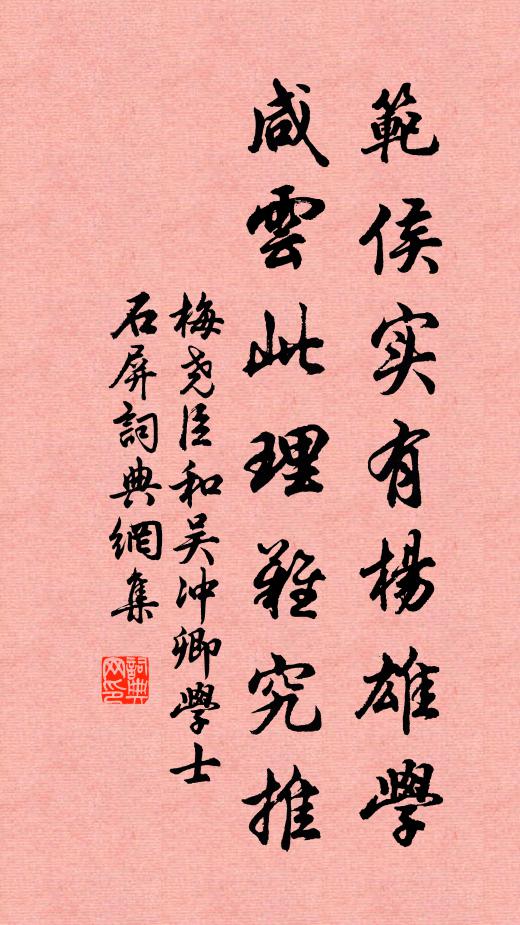 範侯实有楊雄學
咸雲此理難究推
梅尧臣和吴冲卿學士
石屏詞典網集
詞典网印